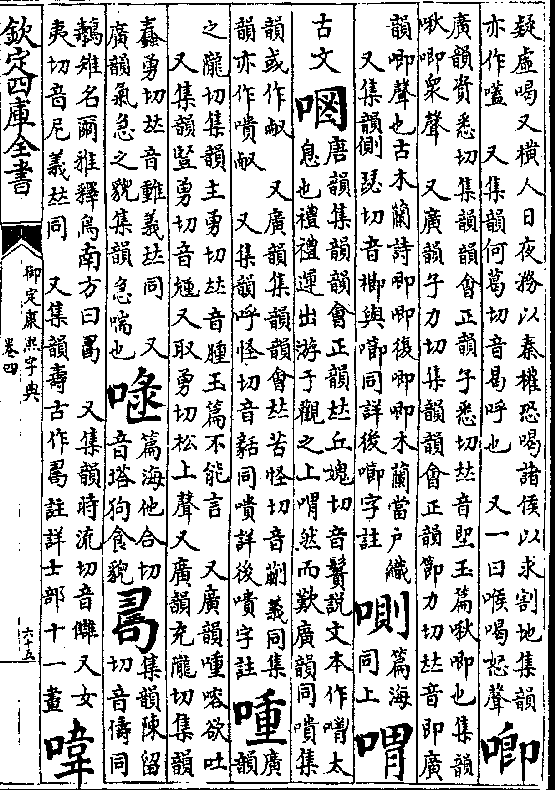 疑虛喝又橫人日夜務以秦權恐喝諸侯以求割地集韻
亦作嗑　又集韻何葛切音曷呼也　又一曰喉喝怒聲
唧
廣韻資悉切集韻韻會正韻子悉切𠀤音堲玉篇啾唧也集韻
啾唧衆聲　又廣韻子力切集韻韻會正韻節力切𠀤音卽廣
韻唧聲也古木蘭詩唧唧復唧唧木蘭當戶織
又集韻側瑟切音櫛與㘉同詳後㘉字註
篇海
同上
喟
古文
唐韻集韻韻會正韻𠀤丘媿切音說文本作太
息也禮禮運出游于觀之上喟然而歎廣韻同嘳集
韻或作㕟　又廣韻集韻韻會𠀤苦怪切音蒯義同集
韻亦作嘳㕟　又集韻呼怪切音同嘳詳後嘳字註
喠
廣
韻
之隴切集韻主勇切𠀤音腫玉篇不能言　又廣韻喠欲吐
又集韻豎勇切音尰又取勇切松上聲又廣韻充隴切集韻
蠢勇切𠀤音義𠀤同　又
廣韻氣急之貌集韻急喘也
篇海他合切
音塔狗食貌
集韻陳留
切音儔同
鷊雉名爾雅釋鳥南方曰　又集韻時流切音讎又女
夷切音尼義𠀤同　又集韻壽古作註詳士部十一畫
喡
欽定四庫全書
御定康熙字典
卷四
六十五